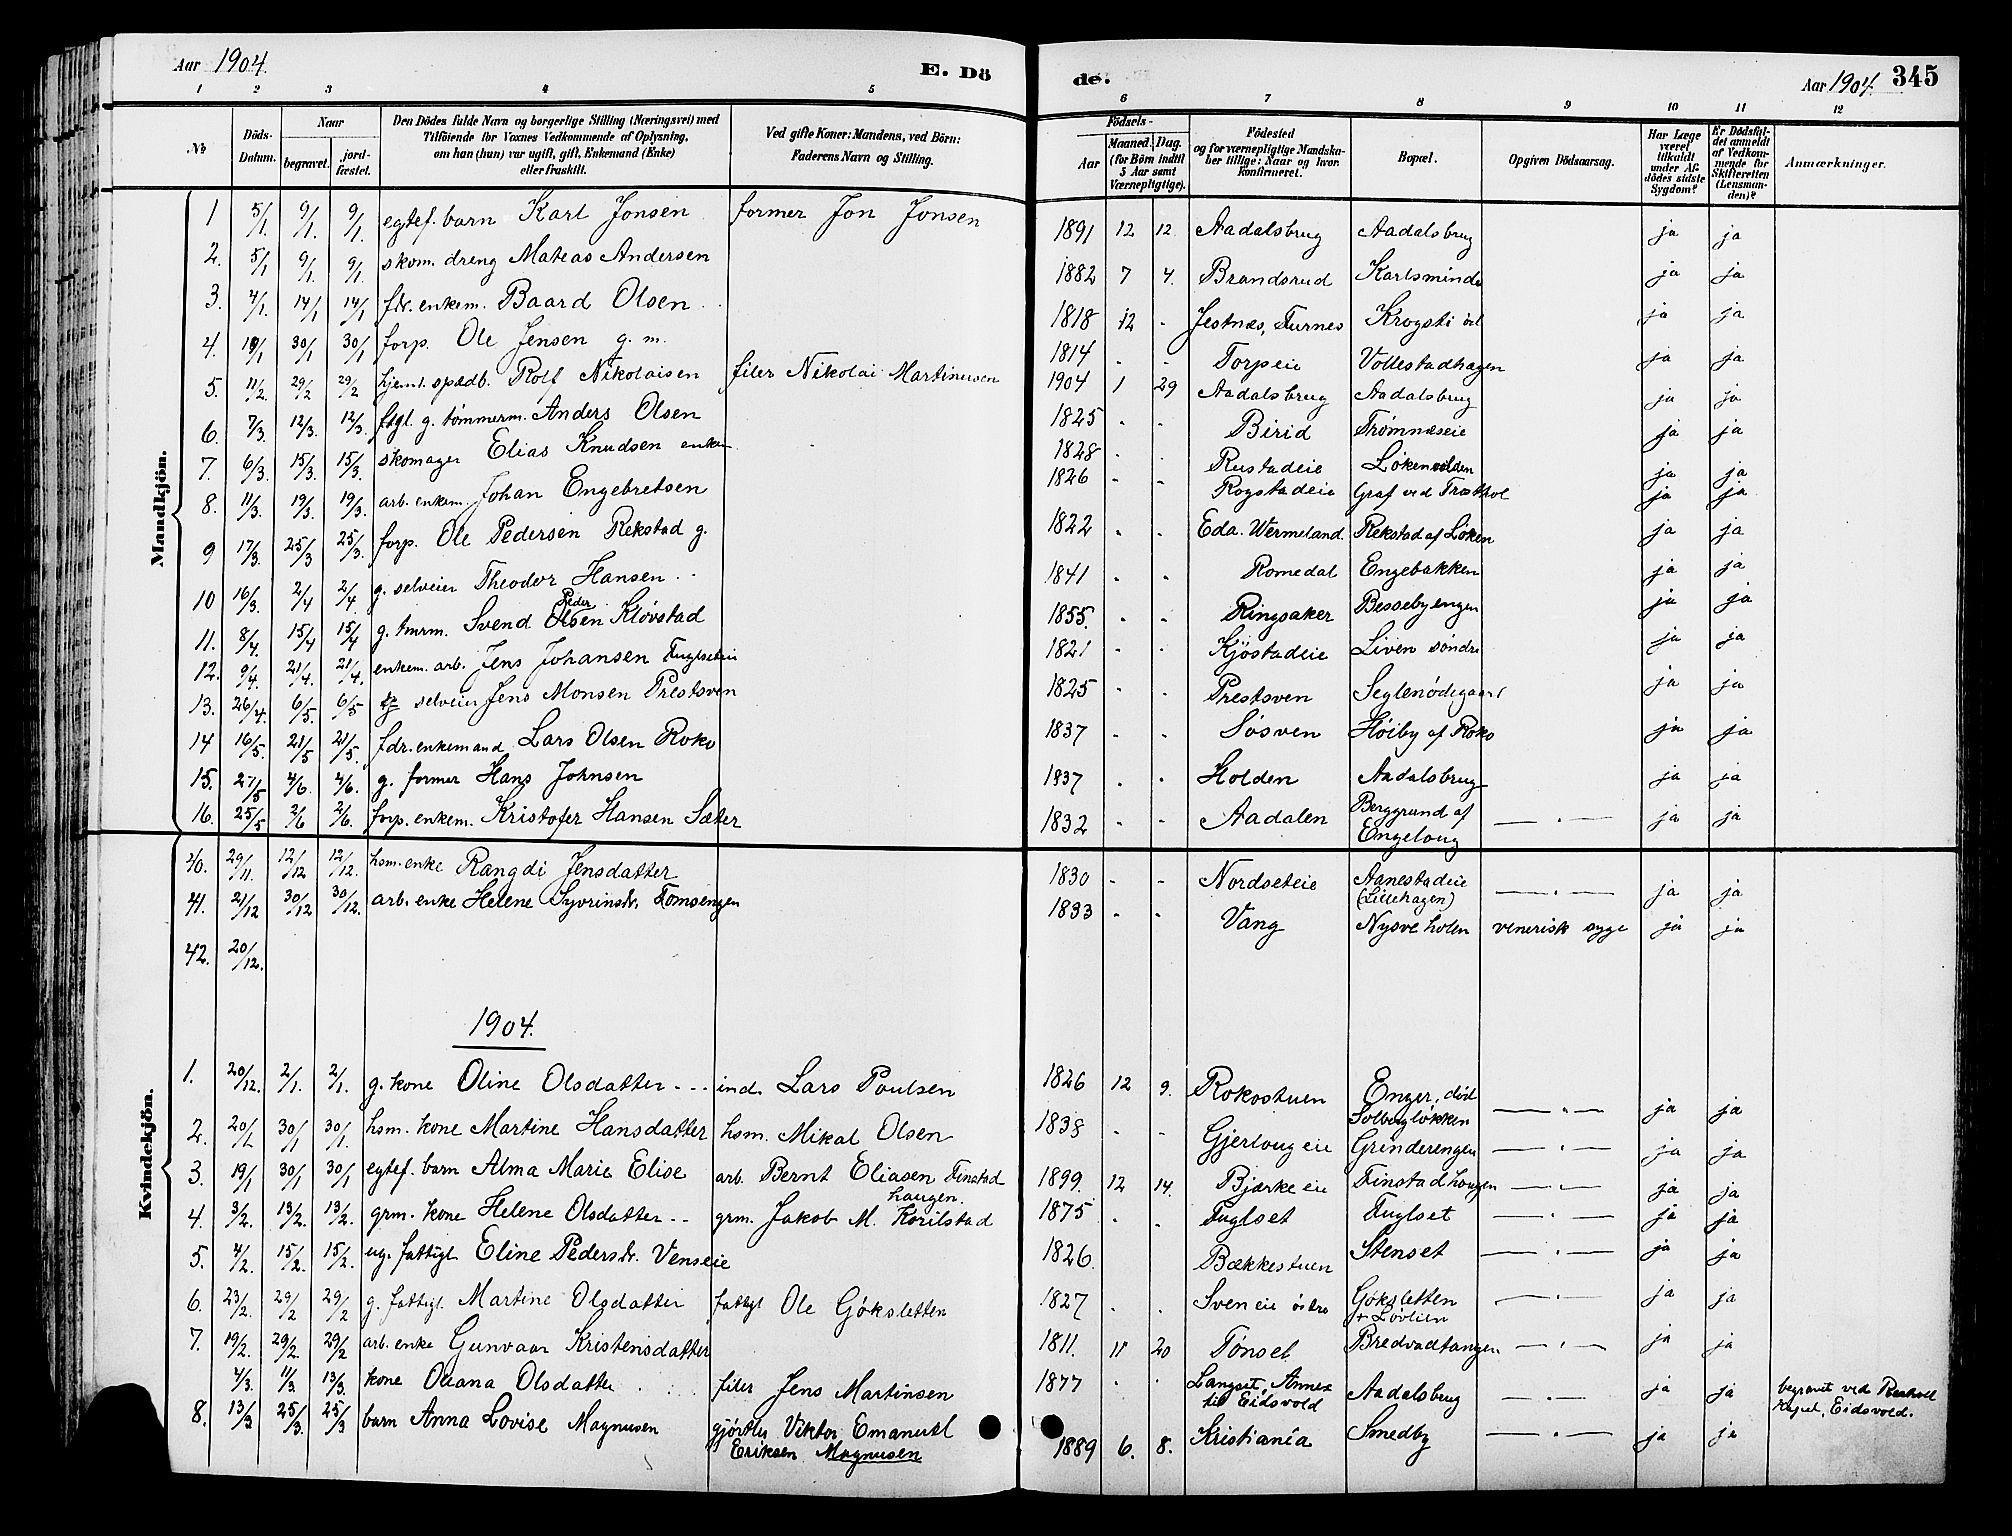 Aar 1904. E. Dö de. Aar 1904. 345
1 2 3 4 5 6 7 8 9 10 11 12
No Döds-Datum. Naar begravet. jordfæstet. Den Dödes fulde Navn og borgerlige Stilling (Næringsvei) med Tilföiende for Voxnes Vedkommende af Oplysning, om han (hun) var ugift, gift, Enkemand (Enke) eller fraskilt. Ved gifte Koner: Mandens, ved Börn: Faderens Navn og Stilling. Födsels- Aar Maaned. Dag. (for Börn indtil 5 Aar samt Værnepligtige). Födested og for værnepligtige Mandskaber tillige: Naar og hvor konfirmeret. Bopæl. Opgiven Dödsaarsag. Har Læge været tilkaldt under Afdödes sidste Sygdom? Er Dödsfaldet anmeldt af Vedkommende for Skifteretten (Lensmanden)? Anmærkninger.
Mandkjön.
1 5/1. 9/1. 9/1. egtef. barn Karl Jonsen former Jon Jonsen 1891 12 12. Aadalsbrug Aadalsbrug ja ja
2. 5/1 9/1. 9/1. skom. dreng Mateas Andersen 1882 7 4. Brandsrud Karlsminde ja ja
3. 4/1. 14/1 14/1 fdr. enkem. Baard Olsen 1818 12 - Jestnæs, Furnes Krogsti ja ja
4. 19/1 30/1 30/1 forp. Ole Jensen g. m. 1814 - - Torpeie Vollestadhagen ja ja
5. 11/2. 29/2 29/2 hjemt. spædb. Rolf Nikolaisen filer Nikolai Martinusen 1904 1 29 Aadalsbrug Aadalsbrug ja ja
6. 7/3. 12/3. 12/3. ftgl. g. tømmerm. Anders Olsen 1825 - - Birid Trømnæseie ja ja
7. 6/3. 15/3. 15/3. skomager Elias Knudsen enkem 1828 - - Rustadeie Løkenvolden ja ja
8. 11/3. 19/3. 19/3. arb. enkem. Johan Engebretsen 1826 - - Rogstadeie Graf ved Træthol ja ja
9 17/3. 25/3 25/3. forp. Ole Pedersen Rekstad g. 1822 - - Eda. Wermeland. Rekstad af Løken ja ja
10 16/3. 2/4 2/4. g. selveier Theodor Hansen 1841 - - Romedal Engebakken ja ja
11. 8/4. 15/4 15/4 g. tmrm. Svend Olsen Peder Kløvstad 1855. - - Ringsaker Bessebyengen ja ja
12. 9/4. 21/4. 21/4. enkem. arb. Jens Johansen Fuglseteie 1821 - - Kjöstadeie Liven søndre ja ja
13. 26/4. 6/5. 6/5 selveier Jens Monsen Prestsven 1825 - - Prestsven Seglenødegaard ja ja
14 16/5. 21/5 21/5. fdr. enkemand Lars Olsen Roko 1837 - - Søsven Høiby af Roko ja ja
15. 27/5 4/6. 4/6. g. former Hans Johnsen 1837 - - Holden Aadalsbrug ja ja
16. 25/5 2/6 2/6. forp. enkem. Kristofer Hansen Sæter 1832 - - Aadalen Berggrund af Engeloug —„— ja ja
40. 29/11. 12/12 12/12. hsm. enke Rangdi Jensdatter 1830 - - Nordseteie Aanestadeie (Lillehagen) —„— ja ja
41. 21/12 30/12 30/12. arb. enke Helene Syvrinsdr. Tomsengen 1833 - - Vang Nysveholen venerisk syge ja ja
42. 20/12.
1904.
Kvindekjön.
1. 20/12. 2/1. 2/1. g. kone Oline Olsdatter - - - ind. Lars Poulsen 1826 12 9. Rokostuen Enger, död Solbergløkken —„— ja ja
2. 20/1 30/1 30/1. hsm. kone Martine Hansdatter hsm. Mikal Olsen 1838 - - Gjerlougeie Grinderengen —„— ja ja
3. 19/1 30/1 30/1 egtef. barn Alma Marie Elise arb. Bernt Eliasen Finstad haugen. 1899. 12 14. Bjærkeeie Finstadhaugen —„— ja ja
4. 3/2. 13/2. 13/2. grm. kone Helene Olsdatter - - grm. Jakob M. Korilstad 1875 - - Fuglset Fuglset —„— ja ja
5. 4/2. 15/2. 15/2. ug. fattigl Eline Pedersdr. Venseie 1826 Bækkestuen Stenset —„— ja ja
6. 23/2. 29/2 29/2 g. fattigl. Martine Olsdatter fattigl Ole Gjöksletten 1827 - - Sveneie östre Gøksletten Løvlien —„— ja ja
7. 19/2. 29/2. 29/2 arb. enke Gunvaar Kristensdatter 1811. 11 20 Tønset Bredvadtangen —„— ja ja
4/3. 11/3 13/3. kone Oliana Olsdatter filer Jens Martinsen 1877 - - Langset, Annex til Eidsvold Aadalsbrug —„— ja ja begravet ved kapel, Eidsvold.
8. 13/3 25/3. 25/3 barn Anna Lovise Magnusen gjörtler Viktor Emanuel Eriksen Magnusen 1889 6. 8. Kristiania Smedby —„— ja ja